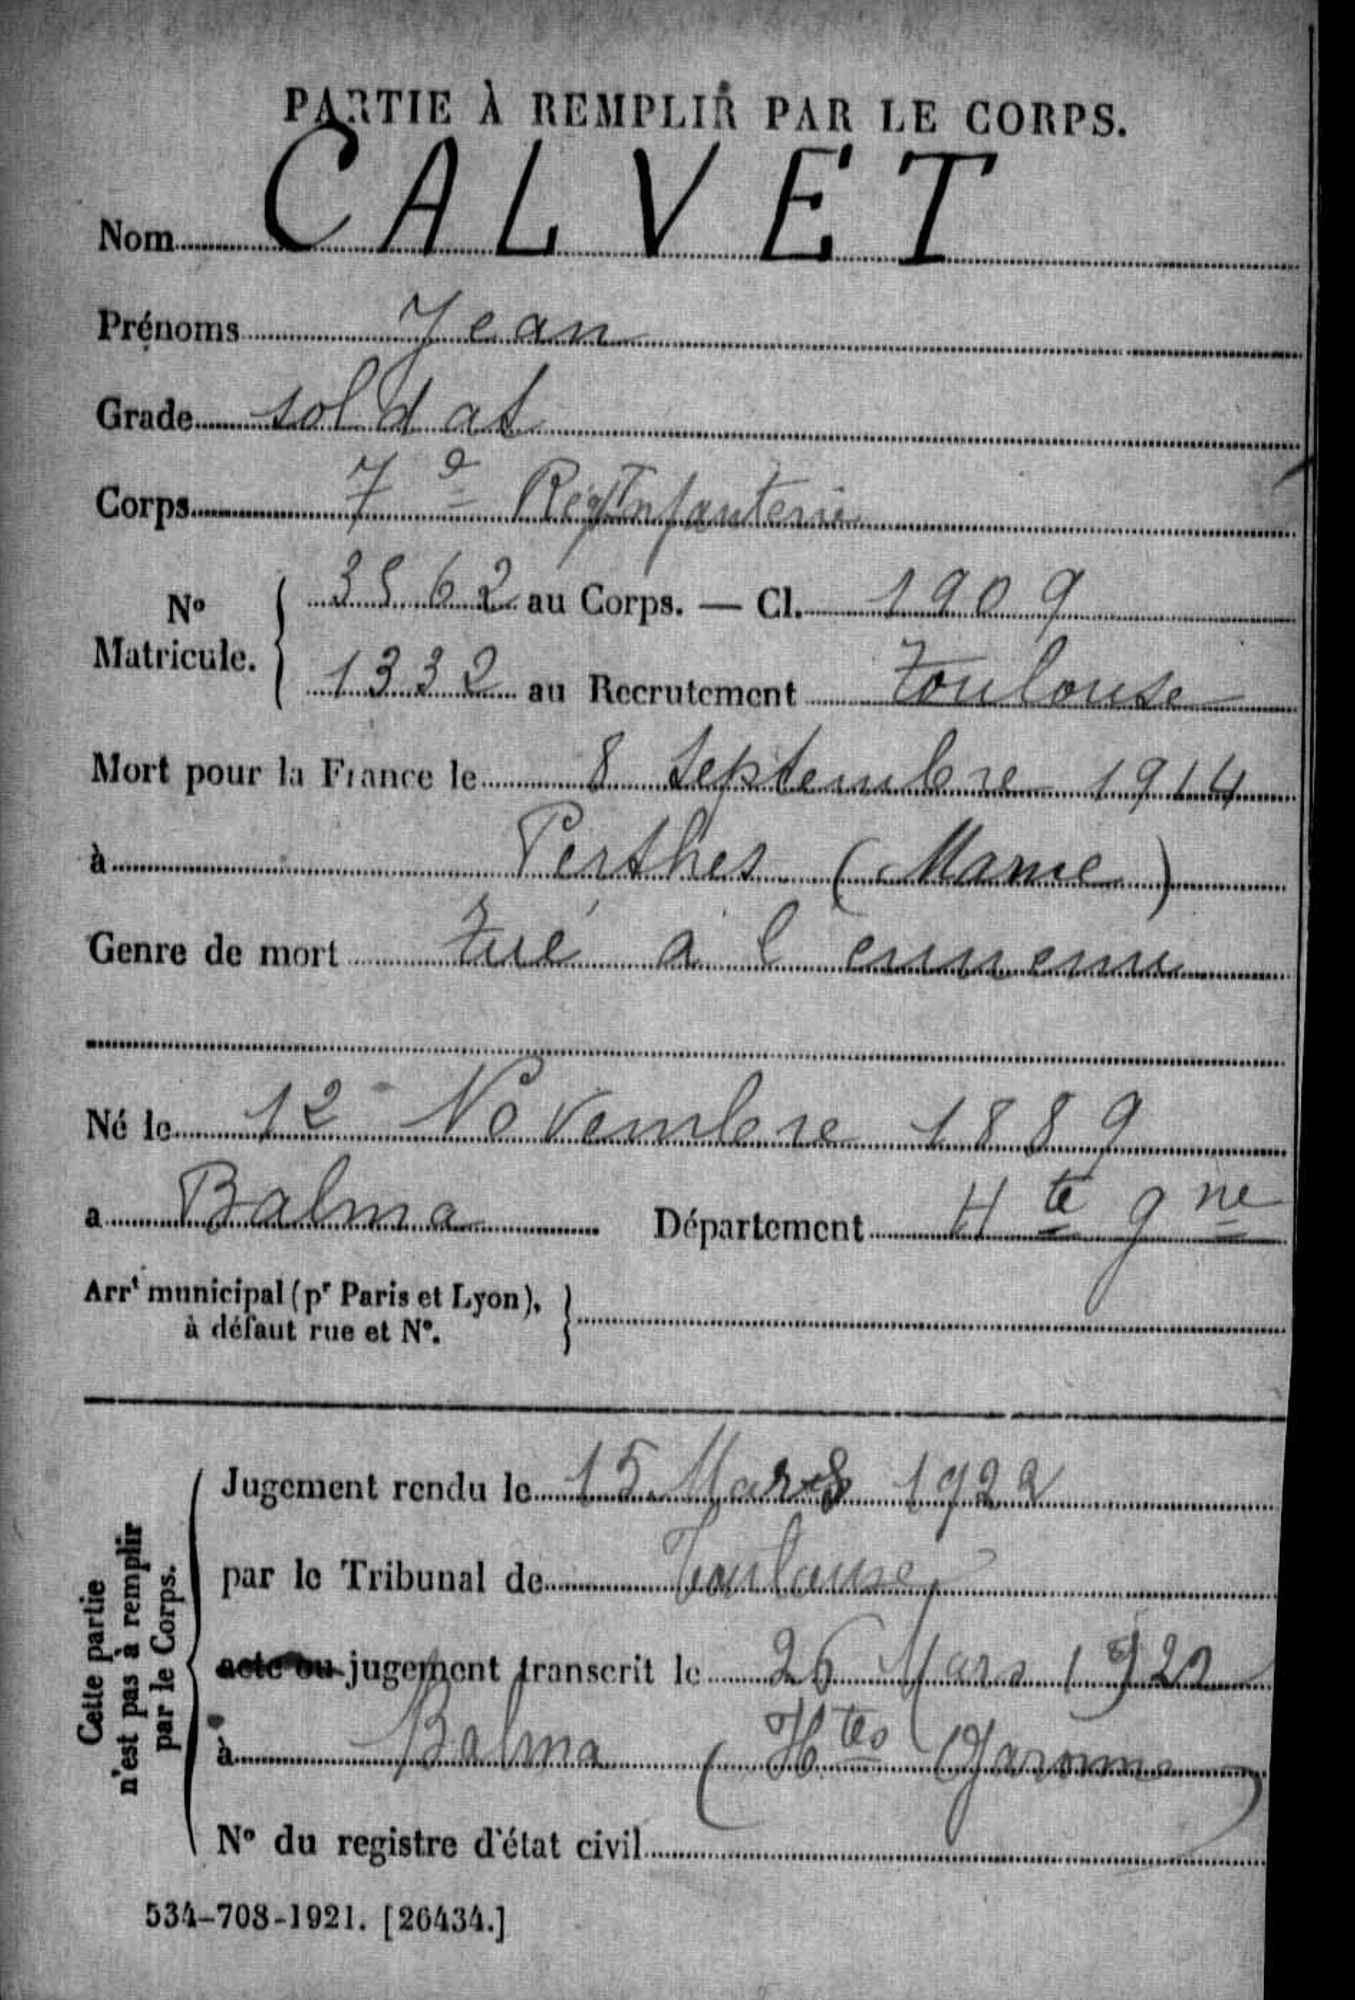 PARTIE À REMPLIR PAR LE CORPS.
Nom CALVET
Prénoms Jean
Grade soldat
Corps 7e Rég Infanterie
N° Matricule. { 3562 au Corps. — Cl. 1909
1332 au Recrutement Toulouse
Mort pour la France le 8 septembre 1914
à Perthes (Marne)
Genre de mort tué à l ennemi
Né le 12 Novembre 1889
a Balma Département Hte gne
Arrt municipal (pr Paris et Lyon), }
à défaut rue et N°.
Cette partie n'est pas à remplir par le Corps.
Jugement rendu le 15 Mars 1922
par le Tribunal de Toulouse
acte ou jugement transcrit le 26 Mars 1922
à Balma (Htes Garonne)
N° du registre d'état civil
534-708-1921. [26434.]